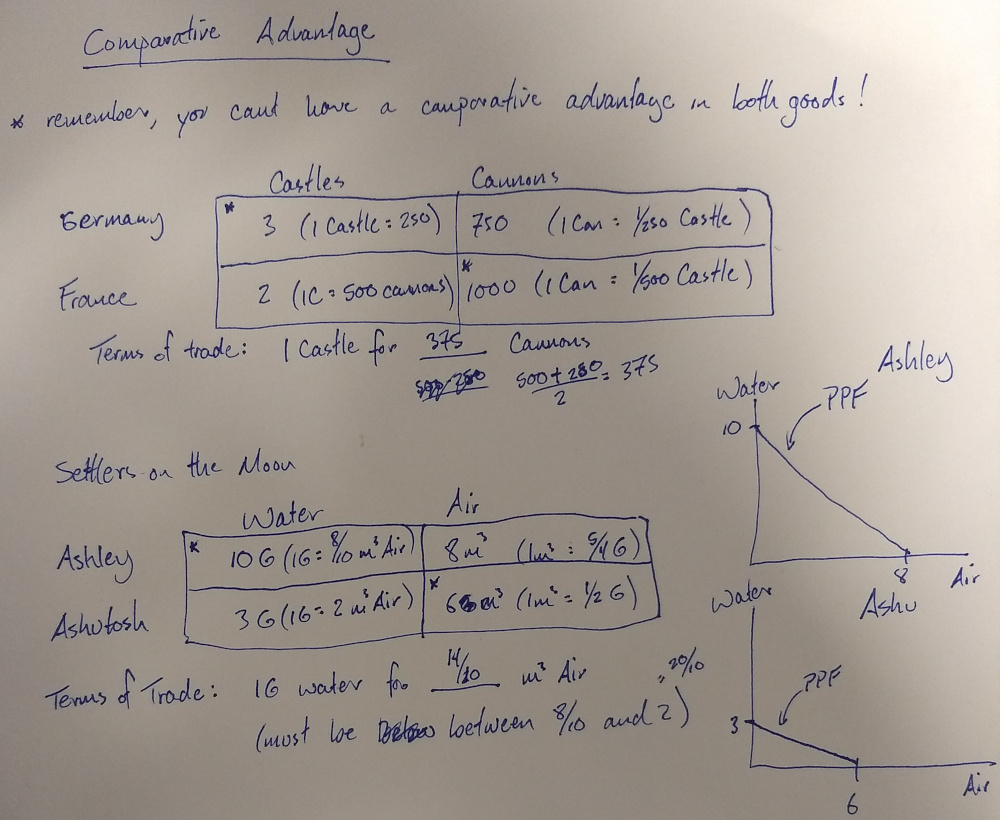 Comparative Advantage
* remember, you cant have a comparative advantage in both goods!
Castles Cannons
Germany * 3 (1 Castle = 250) 750 (1 Can = 1/250 Castle)
France 2 (1C = 500 cannons) * 1000 (1 Can = 1/500 Castle)
Terms of trade: 1 Castle for 375 Cannons
500 + 250 / 2 = 375
Settlers on the Moon
Water Air
Ashley * 10 G (1G = 8/10 m³ Air) 8 m³ (1m³ = 5/4 G)
Ashutosh 3 G (1G = 2 m³ Air) * 6 m³ (1m³ = 1/2 G)
Terms of Trade: 1G water for 14/10 m³ Air
(must be between 8/10 and 2) = 20/10
Ashley
Water
PPF
10
8 Air
Ashu
Water
PPF
3
6 Air